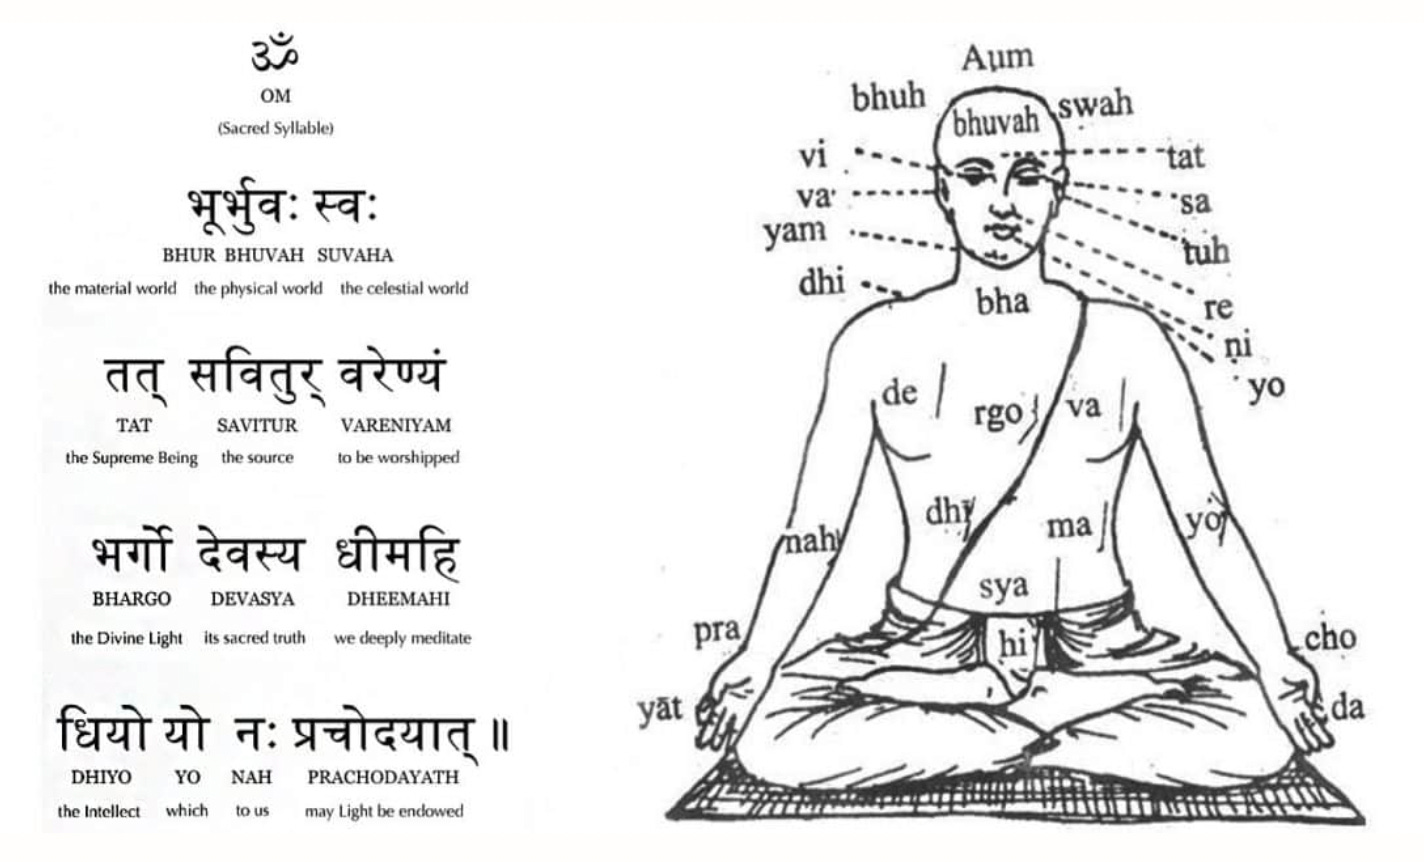 ॐ
OM
(Sacred Syllable)
भूर्भुवः स्वः
BHUR BHUVAH SUVAHA
the material world the physical world the celestial world
तत् सवितुर् वरेण्यं
TAT SAVITUR VARENIYAM
the Supreme Being the source to be worshipped
भर्गो देवस्य धीमहि
BHARGO DEVASYA DHEEMAHI
the Divine Light its sacred truth we deeply meditate
धियो यो नः प्रचोदयात् ॥
DHIYO YO NAH PRACHODAYATH
the Intellect which to us may Light be endowed
Aum
bhuh bhuvah swah
vi tat
va sa
yam tuh
dhi bha re
ṇi
yo
de rgo va
dhī ma yo
nah
sya
pra hi cho
yāt da